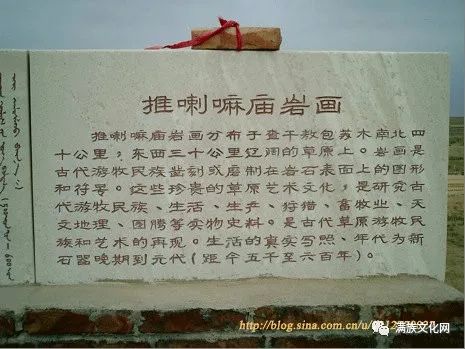 推喇嘛庙岩画
推喇嘛庙岩画分布于查干敖包苏木南北四
十公里，东西三十公里辽阔的草原上。岩画是
古代游牧民族凿刻或磨制在岩石表面上的图形
和符号。这些珍贵的草原艺术文化，是研究古
代游牧民族、生活、生产、狩猎、畜牧业、天
文地理、图腾等实物史料。是古代草原游牧民
族和艺术的再现。生活的真实写照、年代为新
石器晚期到元代（距今五千至六百年）。
满族文化网